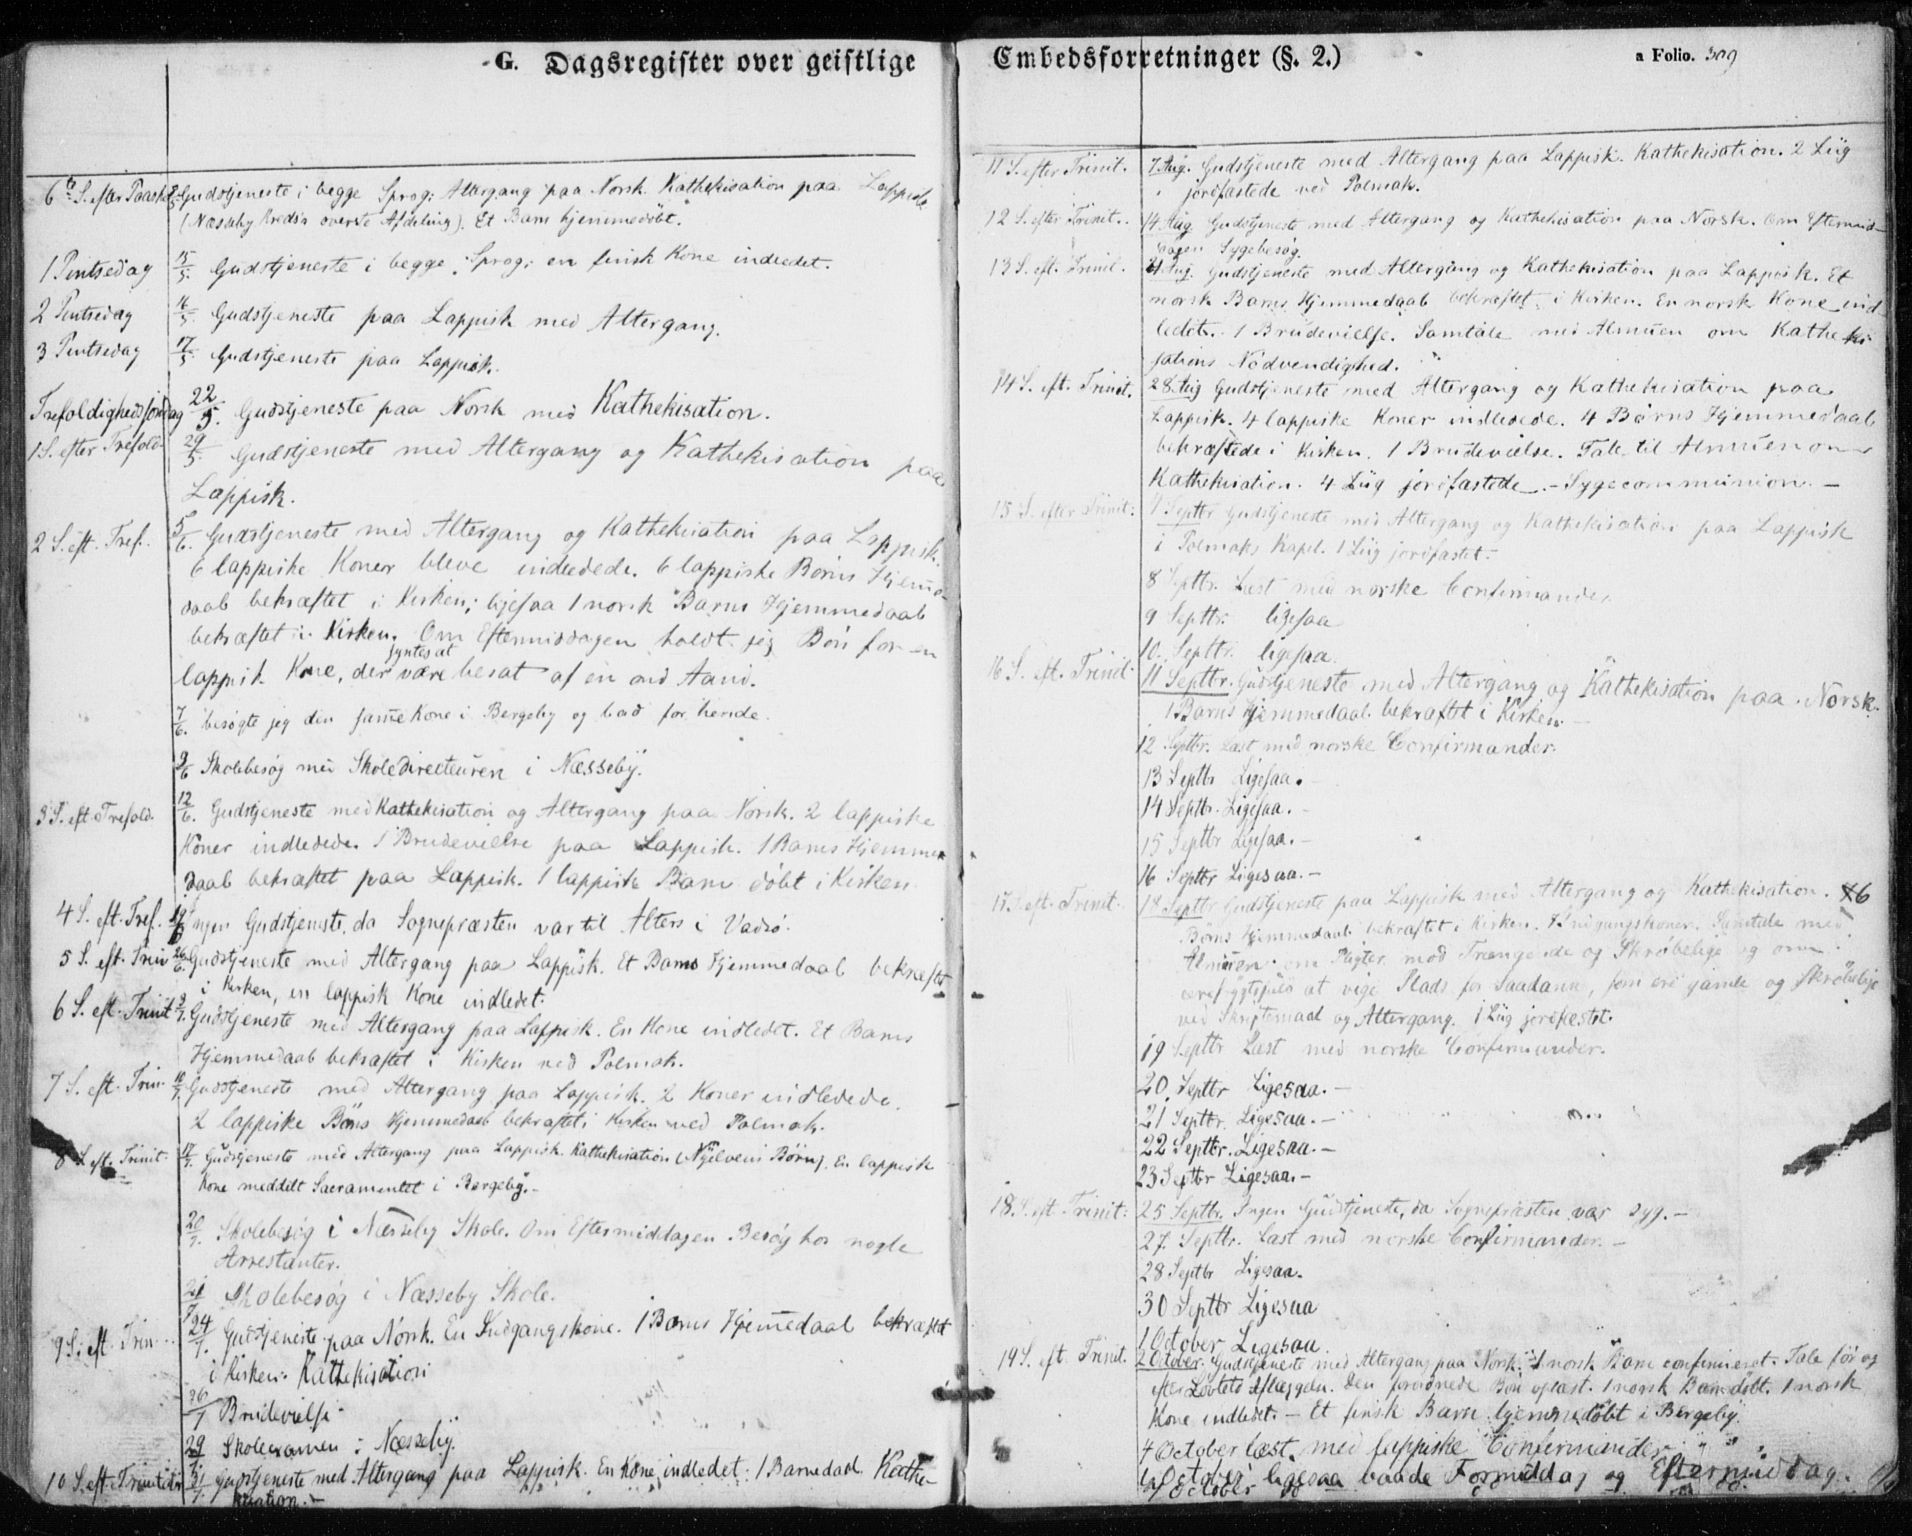 G. Dagsregister over geistlige
6te S. efter Paaske 8/5 Gudstjeneste i begge Sprog; Altergang paa Norsk. Kathekisation paa Lappisk
(Næsseby Kreds's øverste Afdeling). Et Barn hjemmedöbt.
1 Pintsedag 15/5 Gudstjeneste i begge Sprog; en finsk Kone indledet.
2 Pintsedag 16/5 Gudstjeneste paa Lappisk med Altergang.
3 Pintsedag 17/5 Gudstjeneste paa Lappisk.
Trefoldighedssöndag 22/5. Gudstjeneste paa Norsk med Kathekisation.
1 S. efter Trefold. 29/5. Gudstjeneste med Altergang og Kathekisation paa
Lappisk.
2 S. eft. Tref. 5/6. Gudstjeneste med Altergang og Kathekisation paa Lappisk.
6 lappiske Koner bleve indledede. 6 lappiske Börns Hjemme-
daab bekræftet i Kirken; ligesaa 1 norsk Barns Hjemmedaab
bekræftet i Kirken. Om Eftermiddagen holdt jeg Bön for en
lappisk Kone, der syntes at være besat af en ond Aand.
7/6. besögte jeg den samme Kone i Bergeby og bad for hende.
9/6 Skolebesög med Skoledirecteuren i Næsseby.
3 S. eft. Trefold. 12/6. Gudstjeneste med Kathekisation og Altergang paa Norsk. 2 lappiske
Koner indledede. 1 Brudevielse paa Lappisk. 1 Barns Hjemme-
daab bekræftet paa Lappisk. 1 lappisk Barn döbt i Kirken.
4 S. eft. Tref. 19/6 Ingen Gudstjeneste, da Sognepræsten var til Alters i Vadsö.
5 S. eft. Trin 26/6. Gudstjeneste med Altergang paa Lappisk. Et Barns Hjemmedaab bekræftet
i Kirken, en lappisk Kone indledet.
6 S. eft. Trinit 3/7. Gudstjeneste med Altergang paa Lappisk. En Kone indledet. Et Barns
Hjemmedaab bekræftet i Kirken ved Polmak.
7 S. eft. Trin. 10/7. Gudstjeneste med Altergang paa Lappisk. 2 Koner indledede.
2 lappiske Börns Hjemmedaab bekræftet i Kirken ved Polmak.
8 S. eft. Trinit. 17/7. Gudstjeneste med Altergang paa Lappisk. Kathekisation (Nyelvens Börn). En lappisk
Kone meddelt Sacramentet i Bergeby.-
20/7. Skolebesög i Næsseby Skole. Om Eftermiddagen Besög hos nogle
Arrestanter.
21/7 Skolebesög i Næsseby Skole.
9 S. eft. Trin. 24/7. Gudstjeneste paa Norsk. En Indgangskone. 1 Barns Hjemmedaab bekræftet
i Kirken. Kathekisation
26/7 Brudevielse-
29/7 Skoleexamen i Næsseby.
10 S. eft. Trinitatis 31/7. Gudstjeneste med Altergang paa Lappisk. En Kone indledet. 1 Barnedaab. Kathe-
kisation.-
Embedsforretninger (§. 2.) a Folio. 309
11 S. efter Trinit. 7 Aug. Gudstjeneste med Altergang paa Lappisk. Kathekisation. 2 Liig
jordfæstede ved Polmak.
12 S. efter Trinit. 14 Aug. Gudstjeneste med Altergang og Kathekisation paa Norsk. Om Eftermid-
dagen Sygebesög.
13 S. eft. Trinit. 21 Aug. Gudstjeneste med Altergang og Kathekisation paa Lappisk. Et
norsk Barns Hjemmedaab bekræftet i Kirken. En norsk Kone ind-
ledet. 1 Brudevielse. Samtale med Almuen om Katheki-
sations Nödvendighed.
14 S. eft. Trinit. 28. Aug Gudstjeneste med Altergang og Kathekisation paa
Lappisk. 4 lappiske Koner indledede. 4 Börns Hjemmedaab
bekræftede i Kirken. 1 Brudevielse. Tale til Almuen om
Kathekisation. 4 Liig jordfæstede.- Sygecommunion.-
15 S. efter Trinit: 4 Septbr Gudstjeneste med Altergang og Kathekisation paa Lappisk
i Polmaks Kapel. 1 Liig jordfæstet.-
8 Septbr. Læst med norske Confirmander
9 Septbr. ligesaa
10. Septbr. ligesaa.
16 S. eft. Trinit. 11 Septbr. Gudstjeneste med Altergang og Kathekisation paa Norsk.
1 Barns Hjemmedaab bekræftet i Kirken.-
12 Septbr. Læst med norske Confirmander.
13 Septbr Ligesaa.-
14 Septbr. Ligesaa.-
15 Septbr Ligesaa.-
16 Septbr Ligesaa.-
17 S. eft. Trinit. 18 Septbr Gudstjeneste paa Lappisk med Altergang og Kathekisation. 6
Börns Hjemmedaab bekræftet i Kirken. Indgangskoner. Samtale med
Almuen om Pligter mod Trængende og Skröbelige og om
at vige Plads for Saadanne, som ere gamle og skröbelige
ved Skriftemaal og Altergang. 1 Liig jordfæstet.
19 Septbr Læst med norske Confirmander.
20. Septbr Ligesaa.-
21 Septbr. Ligesaa.-
22 Septbr. Ligesaa.-
23 Septbr Ligesaa.-
18. S. eft. Trinit: 25 Septbr. Ingen Gudstjeneste, da Sognepræsten var syg.-
27. Septbr. Læst med norske Confirmander.-
28 Septbr Ligesaa.
30 Septbr Ligesaa
1 October Ligesaa
19 S. eft. Trinit. 2 October. Gudstjeneste med Altergang paa Norsk. 1 norsk Barn confirmeret. Tale för og
efter Löftets Aflæggelse. Den forordnede Bön oplæst. 1 norsk Barn döbt. 1 norsk
Kone indledet.- Et finsk Barn hjemmedöbt i Bergeby.
4 October læst med lappiske Confirmander
October ligesaa baade Formiddag og Eftermiddag.
October